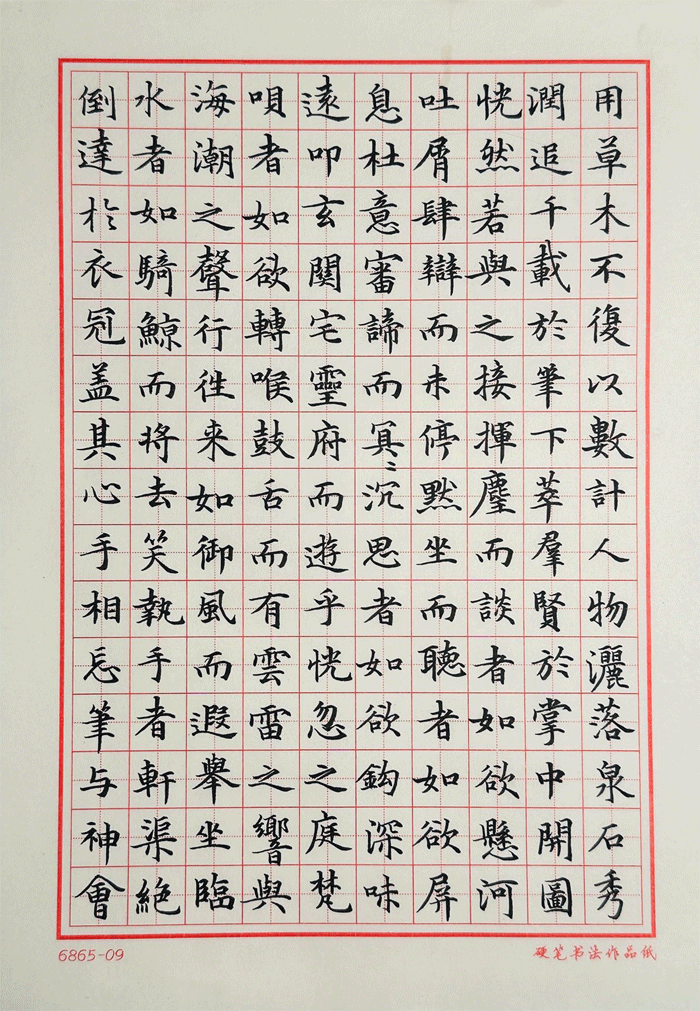 用草木不復以數計人物灑落泉石秀
潤追千載於筆下萃羣賢於掌中開圖
恍然若與之接揮麈而談者如欲懸河
吐屑肆辯而未停默坐而聽者如欲屏
息杜意審諦而冥〻沉思者如欲鈎深味
遠叩玄關宅靈府而遊乎恍忽之庭梵
唄者如欲轉喉鼓舌而有雲雷之響與
海潮之聲行往来如御風而遐舉坐臨
水者如騎鯨而將去笑執手者軒渠絕
倒達扵衣冠盖其心手相忘筆与神會
6865-09
硬笔书法作品纸